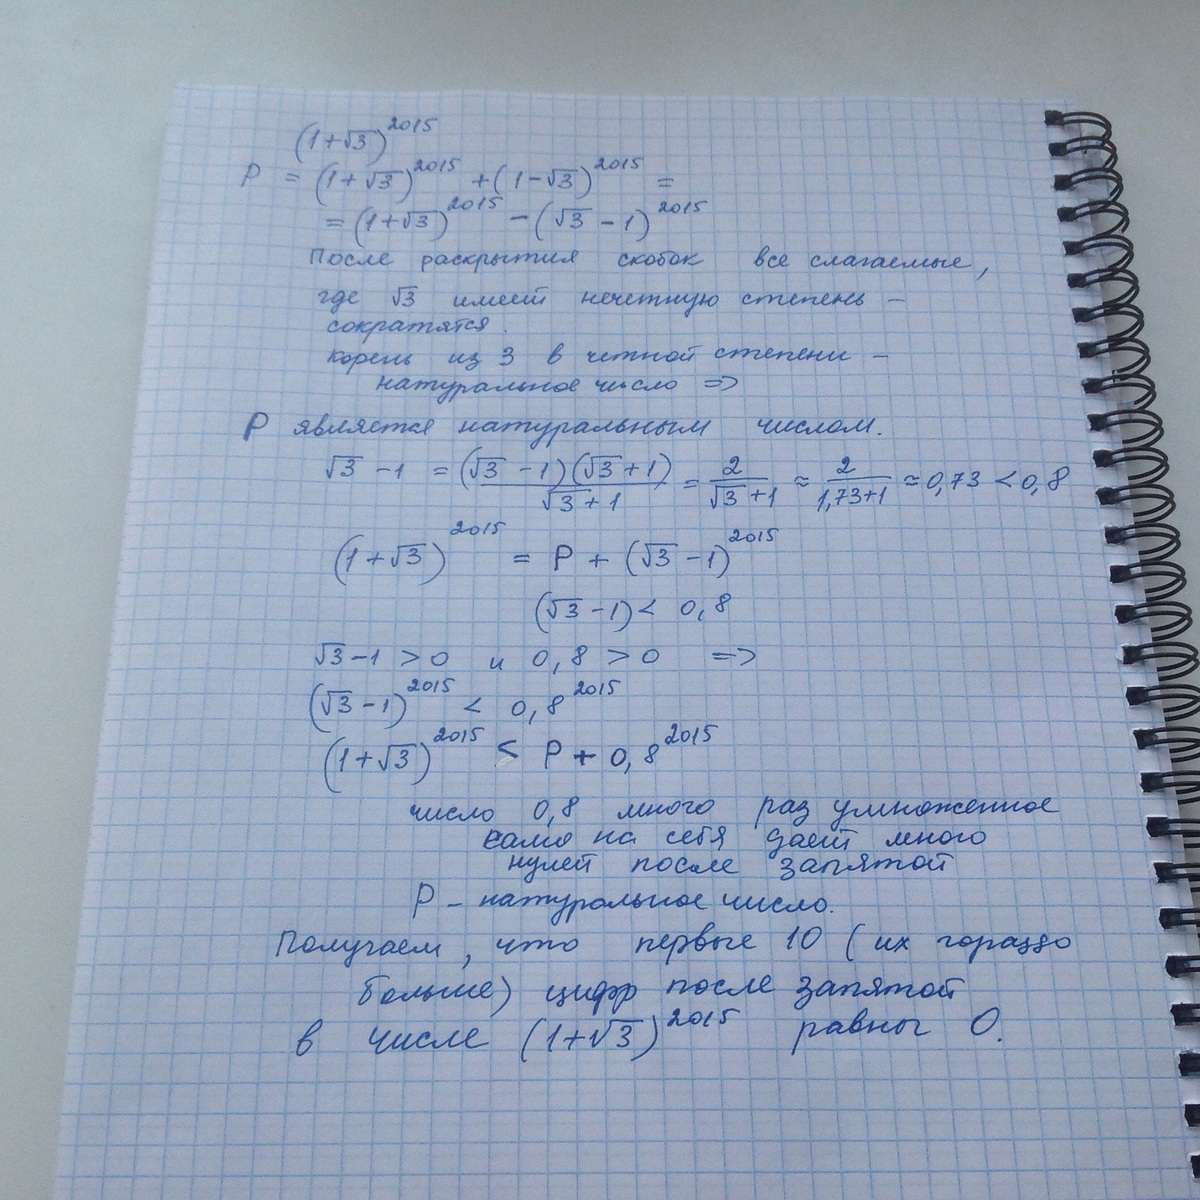 (1+√3)^2015
P = (1+√3)^2015 + (1-√3)^2015 =
= (1+√3)^2015 - (√3 - 1)^2015
После раскрытия скобок все слагаемые,
где √3 имеет нечетную степень -
сократятся.
корень из 3 в четной степени -
натуральное число =>
P является натуральным числом.
√3 - 1 = (√3 - 1)(√3 + 1)/(√3 + 1) = 2/(√3 + 1) ≈ 2/(1,73+1) ≈ 0,73 < 0,8
(1+√3)^2015 = P + (√3 - 1)^2015
(√3 - 1) < 0,8
√3 - 1 > 0 и 0,8 > 0 =>
(√3 - 1)^2015 < 0,8^2015
(1+√3)^2015 < P + 0,8^2015
число 0,8 много раз умноженное
само на себя дает много
нулей после запятой
P - натуральное число.
Получаем, что первые 10 (их гораздо
больше) цифр после запятой
в числе (1+√3)^2015 равны 0.